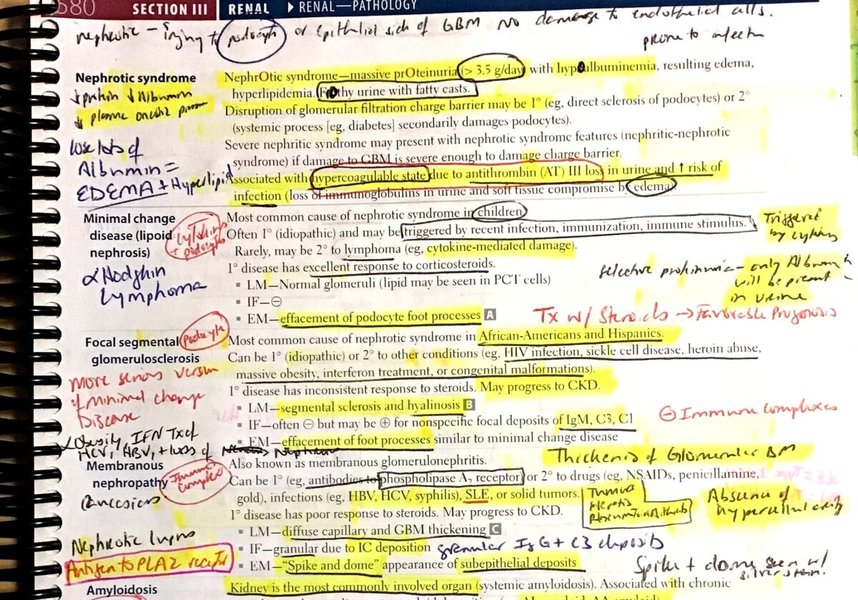 580 SECTION III RENAL ▶ RENAL—PATHOLOGY
nephrotic – injury to podocyte or epithelial side of GBM no damage to endothelial cells.
prone to infection
Nephrotic syndrome
NephrOtic syndrome—massive prOteinuria (> 3.5 g/day) with hypOalbuminemia, resulting edema,
hyperlipidemia. FrOthy urine with fatty casts.
Disruption of glomerular filtration charge barrier may be 1° (eg, direct sclerosis of podocytes) or 2°
(systemic process [eg, diabetes] secondarily damages podocytes).
Severe nephritic syndrome may present with nephrotic syndrome features (nephritic-nephrotic
syndrome) if damage to GBM is severe enough to damage charge barrier.
Associated with hypercoagulable state due to antithrombin (AT) III loss in urine and ↑ risk of
infection (loss of immunoglobulins in urine and soft tissue compromise by edema).
↓ protein ↓ Albumin
↓ plasma oncotic pressure
lose lots of
Albumin =
EDEMA + Hyperlipid
Minimal change
disease (lipoid
nephrosis)
Most common cause of nephrotic syndrome in children.
Often 1° (idiopathic) and may be triggered by recent infection, immunization, immune stimulus.
Rarely, may be 2° to lymphoma (eg, cytokine-mediated damage).
1° disease has excellent response to corticosteroids.
▪ LM—Normal glomeruli (lipid may be seen in PCT cells)
▪ IF—⊖
▪ EM—effacement of podocyte foot processes A
Cytokines
podocyte
Hodgkin
Lymphoma
Triggered
by cytokines
selective proteinuria – only Albumin
will be present
in urine
Tx w/ Steroids → Favorable Prognosis
Focal segmental
glomerulosclerosis
Podocyte
Most common cause of nephrotic syndrome in African-Americans and Hispanics.
Can be 1° (idiopathic) or 2° to other conditions (eg, HIV infection, sickle cell disease, heroin abuse,
massive obesity, interferon treatment, or congenital malformations).
1° disease has inconsistent response to steroids. May progress to CKD.
▪ LM—segmental sclerosis and hyalinosis B
▪ IF—often ⊖ but may be ⊕ for nonspecific focal deposits of IgM, C3, C1
▪ EM—effacement of foot processes similar to minimal change disease
more serious version
of minimal change
Disease
Obesity, IFN Tx of
HCV, HBV, + loss of
⊖ Immune complexes
Membranous
nephropathy
Immune
Complex
Also known as membranous glomerulonephritis.
Can be 1° (eg, antibodies to phospholipase A₂ receptor) or 2° to drugs (eg, NSAIDs, penicillamine,
gold), infections (eg, HBV, HCV, syphilis), SLE, or solid tumors.
1° disease has poor response to steroids. May progress to CKD.
▪ LM—diffuse capillary and GBM thickening C
▪ IF—granular due to IC deposition
▪ EM—"Spike and dome" appearance of subepithelial deposits
Thickening of Glomerular BM
Caucasians
Tumors
Hepatitis
Rheumatoid Arthritis
Absence of
hypercellularity
Nephrotic lupus
Antigen to PLA2 receptor
granular IgG + C3 deposits
Spike + dome seen w/
silver stain.
Amyloidosis
Kidney is the most commonly involved organ (systemic amyloidosis). Associated with chronic